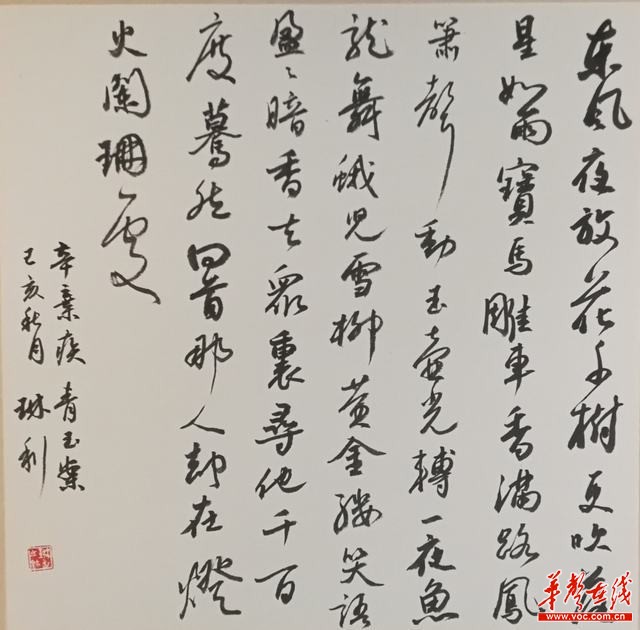 東風夜放花千樹更吹落
星如雨寶馬雕車香滿路鳳
簫聲動玉壺光轉一夜魚
龍舞蛾兒雪柳黄金縷笑語
盈々暗香去衆裏尋他千百
度驀然回首那人却在燈
火闌珊處
辛棄疾 青玉案
己亥秋月 琳利
華聲在线
www.voc.com.cn